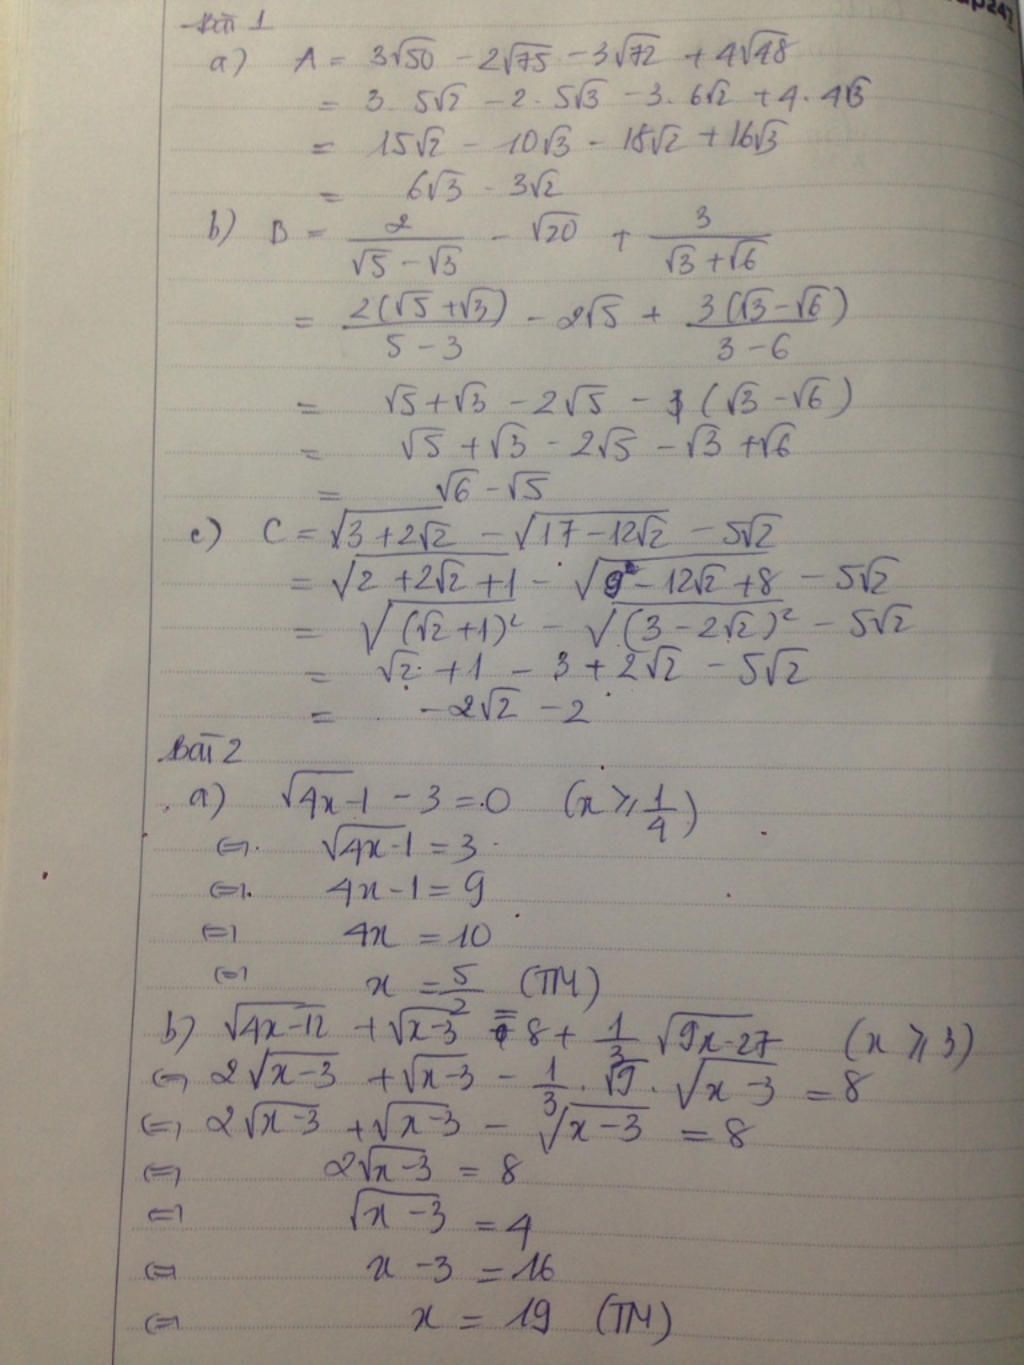 Bài 1
a) A = 3√50 - 2√75 - 3√72 + 4√48
= 3. 5√2 - 2. 5√3 - 3. 6√2 + 4. 4√3
= 15√2 - 10√3 - 18√2 + 16√3
= 6√3 - 3√2
b) B = 2/(√5 - √3) - √20 + 3/(√3 + √6)
= 2(√5 + √3)/(5 - 3) - 2√5 + 3(√3 - √6)/(3 - 6)
= √5 + √3 - 2√5 - 1(√3 - √6)
= √5 + √3 - 2√5 - √3 + √6
= √6 - √5
c) C = √(3 + 2√2) - √(17 - 12√2) - 5√2
= √(2 + 2√2 + 1) - √(9 - 12√2 + 8) - 5√2
= √((√2 + 1)²) - √((3 - 2√2)²) - 5√2
= √2 + 1 - 3 + 2√2 - 5√2
= -2√2 - 2
Bài 2
a) √(4x-1) - 3 = 0 (x ⩾ 1/4)
⇔ √(4x-1) = 3
⇔ 4x - 1 = 9
⇔ 4x = 10
⇔ x = 5/2 (TM)
b) √(4x-12) + √(x-3) = 8 + 1/3 √(9x-27) (x ⩾ 3)
⇔ 2√(x-3) + √(x-3) - 1/3 . √9 . √(x-3) = 8
⇔ 2√(x-3) + √(x-3) - √(x-3) = 8
⇔ 2√(x-3) = 8
⇔ √(x-3) = 4
⇔ x - 3 = 16
⇔ x = 19 (TM)